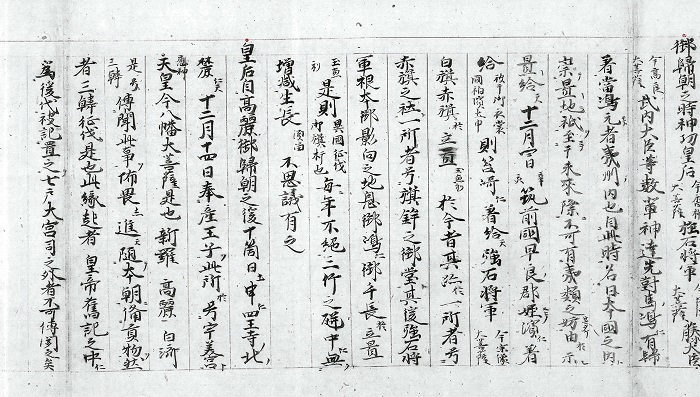 御歸朝之時神功皇后 強石將軍 大菩薩 藤大臣
今高良大菩薩 武内大臣等数軍神達先對馬嶋有歸
着當嶋元者貳州内也自此時名日本國之内
崇置地祇至于未來際不可有貳類之妨由示
置給 十二月四日 筑前國早良郡姪濱着
給 則 着給 強石將軍 今宗像大菩薩
白旗赤旗 立置 於今者其跡一所者号
赤旗之社一所者号旗鉾之御堂其後強石將
軍視本御影向之地息御嶋御千長立置
玉 是則 異國征伐御旗 也 每年不絶三竹之 中血
增減生長 不思議有之
皇后自高麗御歸朝之後十箇日申四王寺北
麓 十二月十四日奉産王子此所号宇美宮
應神天皇今八幡大菩薩是也新羅 高麗 百濟
是 三韓 傳聞此事 怖畏 進随本朝備貢物然
者三韓征伐是也此緣起者 皇帝舊記之中
爲後代被記置之七巻大宮司之外者不可傳聞之矣